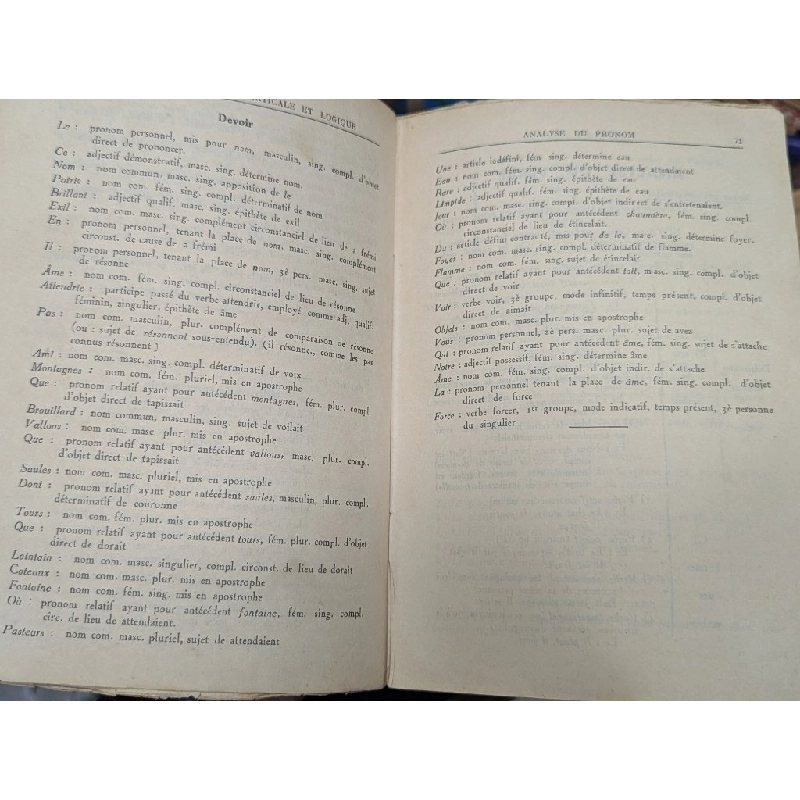 TICALE ET LOGIQUE
Devoir
Le : pronom personnel, mis pour nom, masculin, sing. compl. d'objet
direct de prononcer
Ce : adjectif démonstratif, masc. sing. détermine nom.
Nom : nom commun, masc. sing. apposition de le
Patrie : nom com. fém. sing. compl. déterminatif de nom
Brillant : adjectif qualif. masc. sing. épithète de exil
Exil : nom com. masc. sing. complément circonstanciel de lieu de a frémi
En : pronom personnel, tenant la place de nom, masc. sing. complément
circonst. de cause de a frémi
Il : pronom personnel, tenant la place de nom, 3è pers. masc. sing. sujet
de résonne
Âme : nom com. fém. sing. compl. circonstanciel de lieu de résonne
Attendrie : participe passé du verbe attendrir, employé comme adj. qualif.
féminin, singulier, épithète de âme
Pas : nom com. masculin, plur. complément de comparaison de résonne
(ou : sujet de résonnent sous-entendu). (il résonne, comme les pas
connus résonnent)
Ami : nom com. masc. sing. compl. déterminatif de voix
Montagnes : nom com. fém. pluriel, mis en apostrophe
Que : pronom relatif ayant pour antécédent montagnes, fém. plur. compl.
d'objet direct de tapissait
Brouillard : nom commun, masculin, sing. sujet de voilait
Vallons : nom com. masc. plur. mis en apostrophe
Que : pronom relatif ayant pour antécédent vallons, masc. plur. compl.
d'objet direct de tapissait
Saules : nom com. masc. pluriel, mis en apostrophe
Dont : pronom relatif ayant pour antécédent saules, masculin, plur. compl.
déterminatif de couronne
Tours : nom com. fém. plur. mis en apostrophe
Que : pronom relatif ayant pour antécédent tours, fém. plur. compl. d'objet
direct de dorait
Lointain : nom com. masc. singulier, compl. circonst. de lieu de dorait
Coteaux : nom com. masc. plur. mis en apostrophe
Fontaine : nom com. fém. sing. mis en apostrophe
Où : pronom relatif ayant pour antécédent fontaine, fém. sing. compl.
circ. de lieu de attendaient.
Pasteurs : nom com. masc. pluriel, sujet de attendaient
ANALYSE DU PRONOM 71
Une : article indéfini, fém. sing. détermine eau
Eau : nom com. fém. sing. compl. d'objet direct de attendaient
Rare : adjectif qualif. fém. sing. épithète de eau
Limpide : adjectif qualif. fém. sing. épithète de eau
Jour : nom com. masc. sing. compl. d'objet indirect de s'entretenaient.
Où : pronom relatif ayant pour antécédent chaumière, fém. sing. compl.
circonstanciel de lieu de étincelait.
Du : article défini contracté, mis pour de le, masc. sing. détermine foyer.
Foyer : nom com. masc. sing. compl. déterminatif de flamme.
Flamme : nom com. fém. sing. sujet de étincelait
Que : pronom relatif ayant pour antécédent toit, masc. sing. compl. d'objet
direct de voir
Voir : verbe voir, 3è groupe, mode infinitif, temps présent, compl. d'objet
direct de aimait
Objets : nom com. masc. plur. mis en apostrophe
Vous : pronom personnel, 2è pers. masc. plur. sujet de avez
Qui : pronom relatif ayant pour antécédent âme, fém. sing. sujet de s'attache
Notre : adjectif possessif, fém. sing. détermine âme
Âme : nom com. fém. sing. compl. d'objet indir. de s'attache
La : pronom personnel tenant la place de âme, fém. sing. compl. d'objet
direct de force
Force : verbe forcer, 1er groupe, mode indicatif, temps présent, 3è personne
du singulier